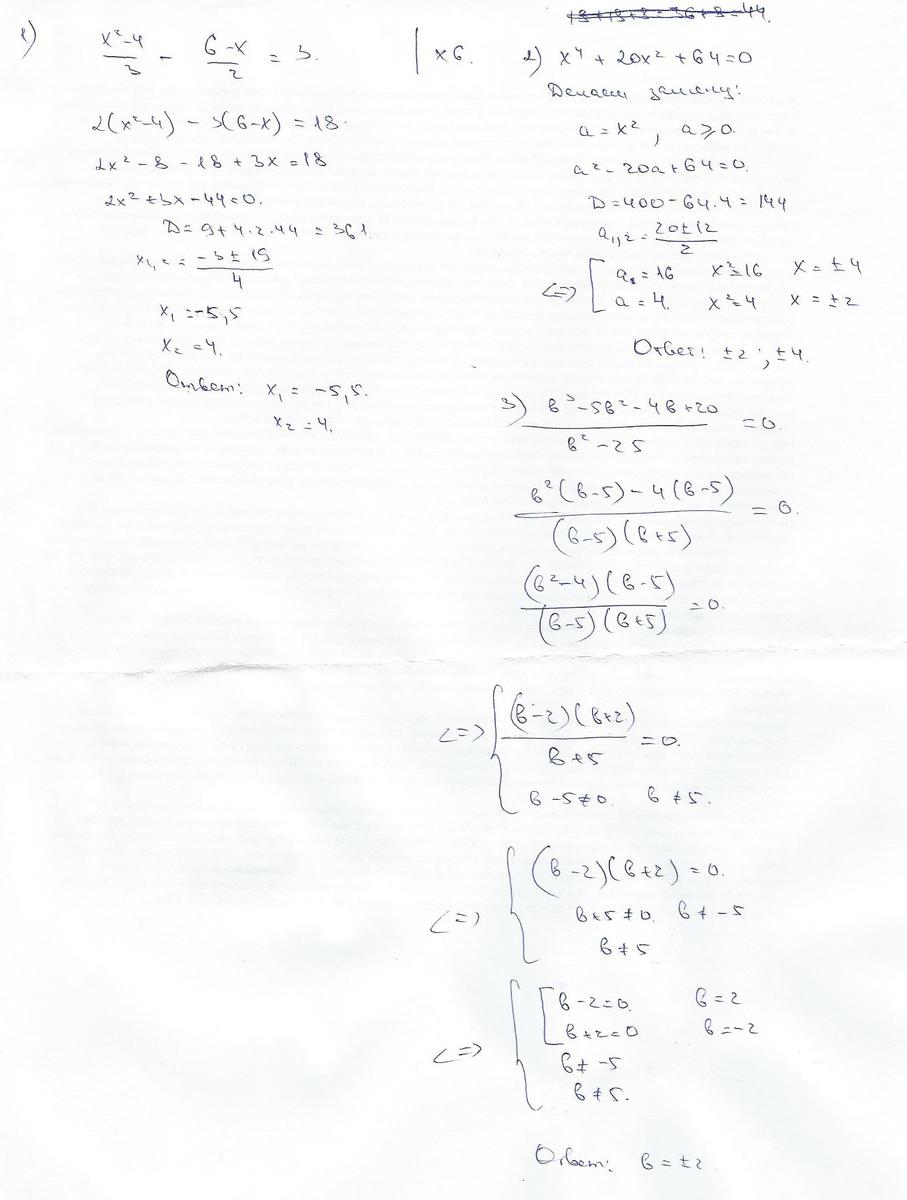 1) (x²-4)/3 - (6-x)/2 = 3. | ×6.
2(x²-4) - 3(6-x) = 18.
2x² - 8 - 18 + 3x = 18
2x² + 3x - 44 = 0.
D = 9 + 4·2·44 = 361.
x₁,₂ = (-3 ± 19)/4
x₁ = -5,5
x₂ = 4.
Ответ: x₁ = -5,5.
x₂ = 4.
18+18+8=36+8=44.
2) x⁴ + 20x² + 64 = 0
Делаем замену:
a = x², a ⩾ 0.
a² - 20a + 64 = 0.
D = 400 - 64·4 = 144
a₁,₂ = (20 ± 12)/2
<=> [ a₁ = 16 x² = 16 x = ± 4
a = 4. x² = 4 x = ± 2
Ответ: ±2 ; ±4.
3) (в³ - 5в² - 4в + 20)/(в² - 25) = 0.
(в²(в-5) - 4(в-5))/((в-5)(в+5)) = 0.
((в²-4)(в-5))/((в-5)(в+5)) = 0.
<=> { ((в-2)(в+2))/(в+5) = 0.
в - 5 ≠ 0. в ≠ 5.
<=> { (в-2)(в+2) = 0.
в+5 ≠ 0. в ≠ -5
в ≠ 5
<=> { [ в-2=0. в=2
в+2=0 в=-2
в ≠ -5
в ≠ 5.
Ответ: в = ±2